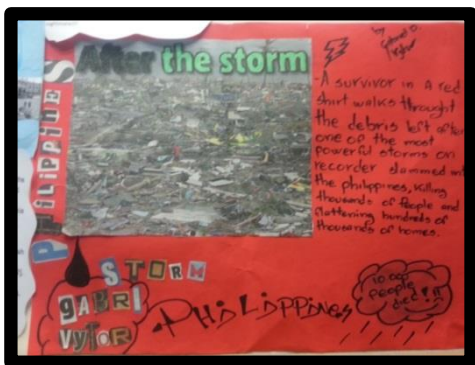 After the storm
by
PHILIPPINES
-A survivor in A red
shirt walks throught
the debris left after
one of the most
powerful storms on
recorder slammed
the philippines, killing
thousands of people and
flattening hundreds of
thousands of homes.
STORM
GABRI
VYTOR
PHILIPPINES
10.000
people
died!!!